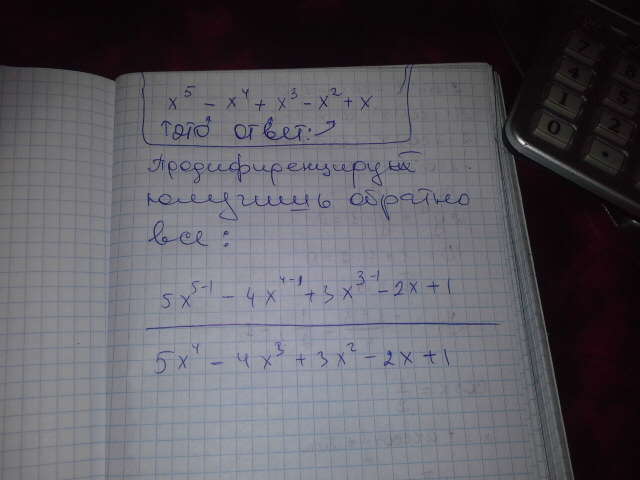 x⁵ - x⁴ + x³ - x² + x
этот ответ:
Продифиренцируй
получишь обратно
все:
5x⁵⁻¹ - 4x⁴⁻¹ + 3x³⁻¹ - 2x + 1
5x⁴ - 4x³ + 3x² - 2x + 1